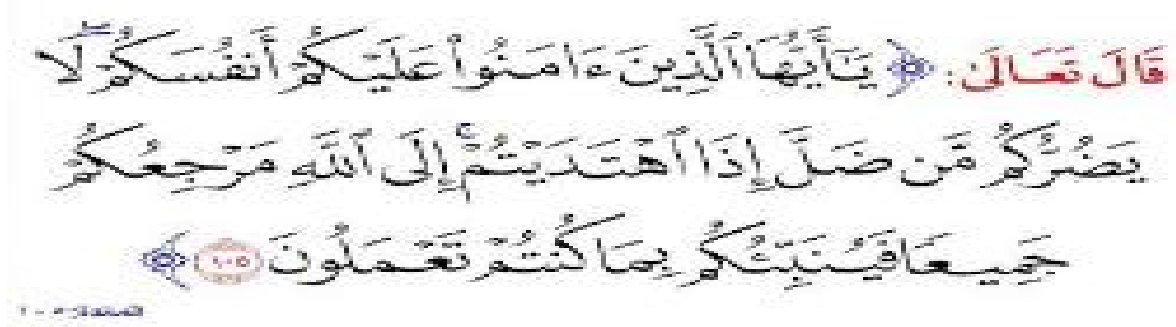 قَالَ تَعَالَىٰ: ﴿ يَـٰٓأَيُّهَا ٱلَّذِينَ ءَامَنُوا۟ عَلَيْكُمْ أَنفُسَكُمْ ۖ لَا
يَضُرُّكُم مَّن ضَلَّ إِذَا ٱهْتَدَيْتُمْ ۚ إِلَى ٱللَّهِ مَرْجِعُكُمْ
جَمِيعًا فَيُنَبِّئُكُم بِمَا كُنتُمْ تَعْمَلُونَ ١٠٥ ﴾